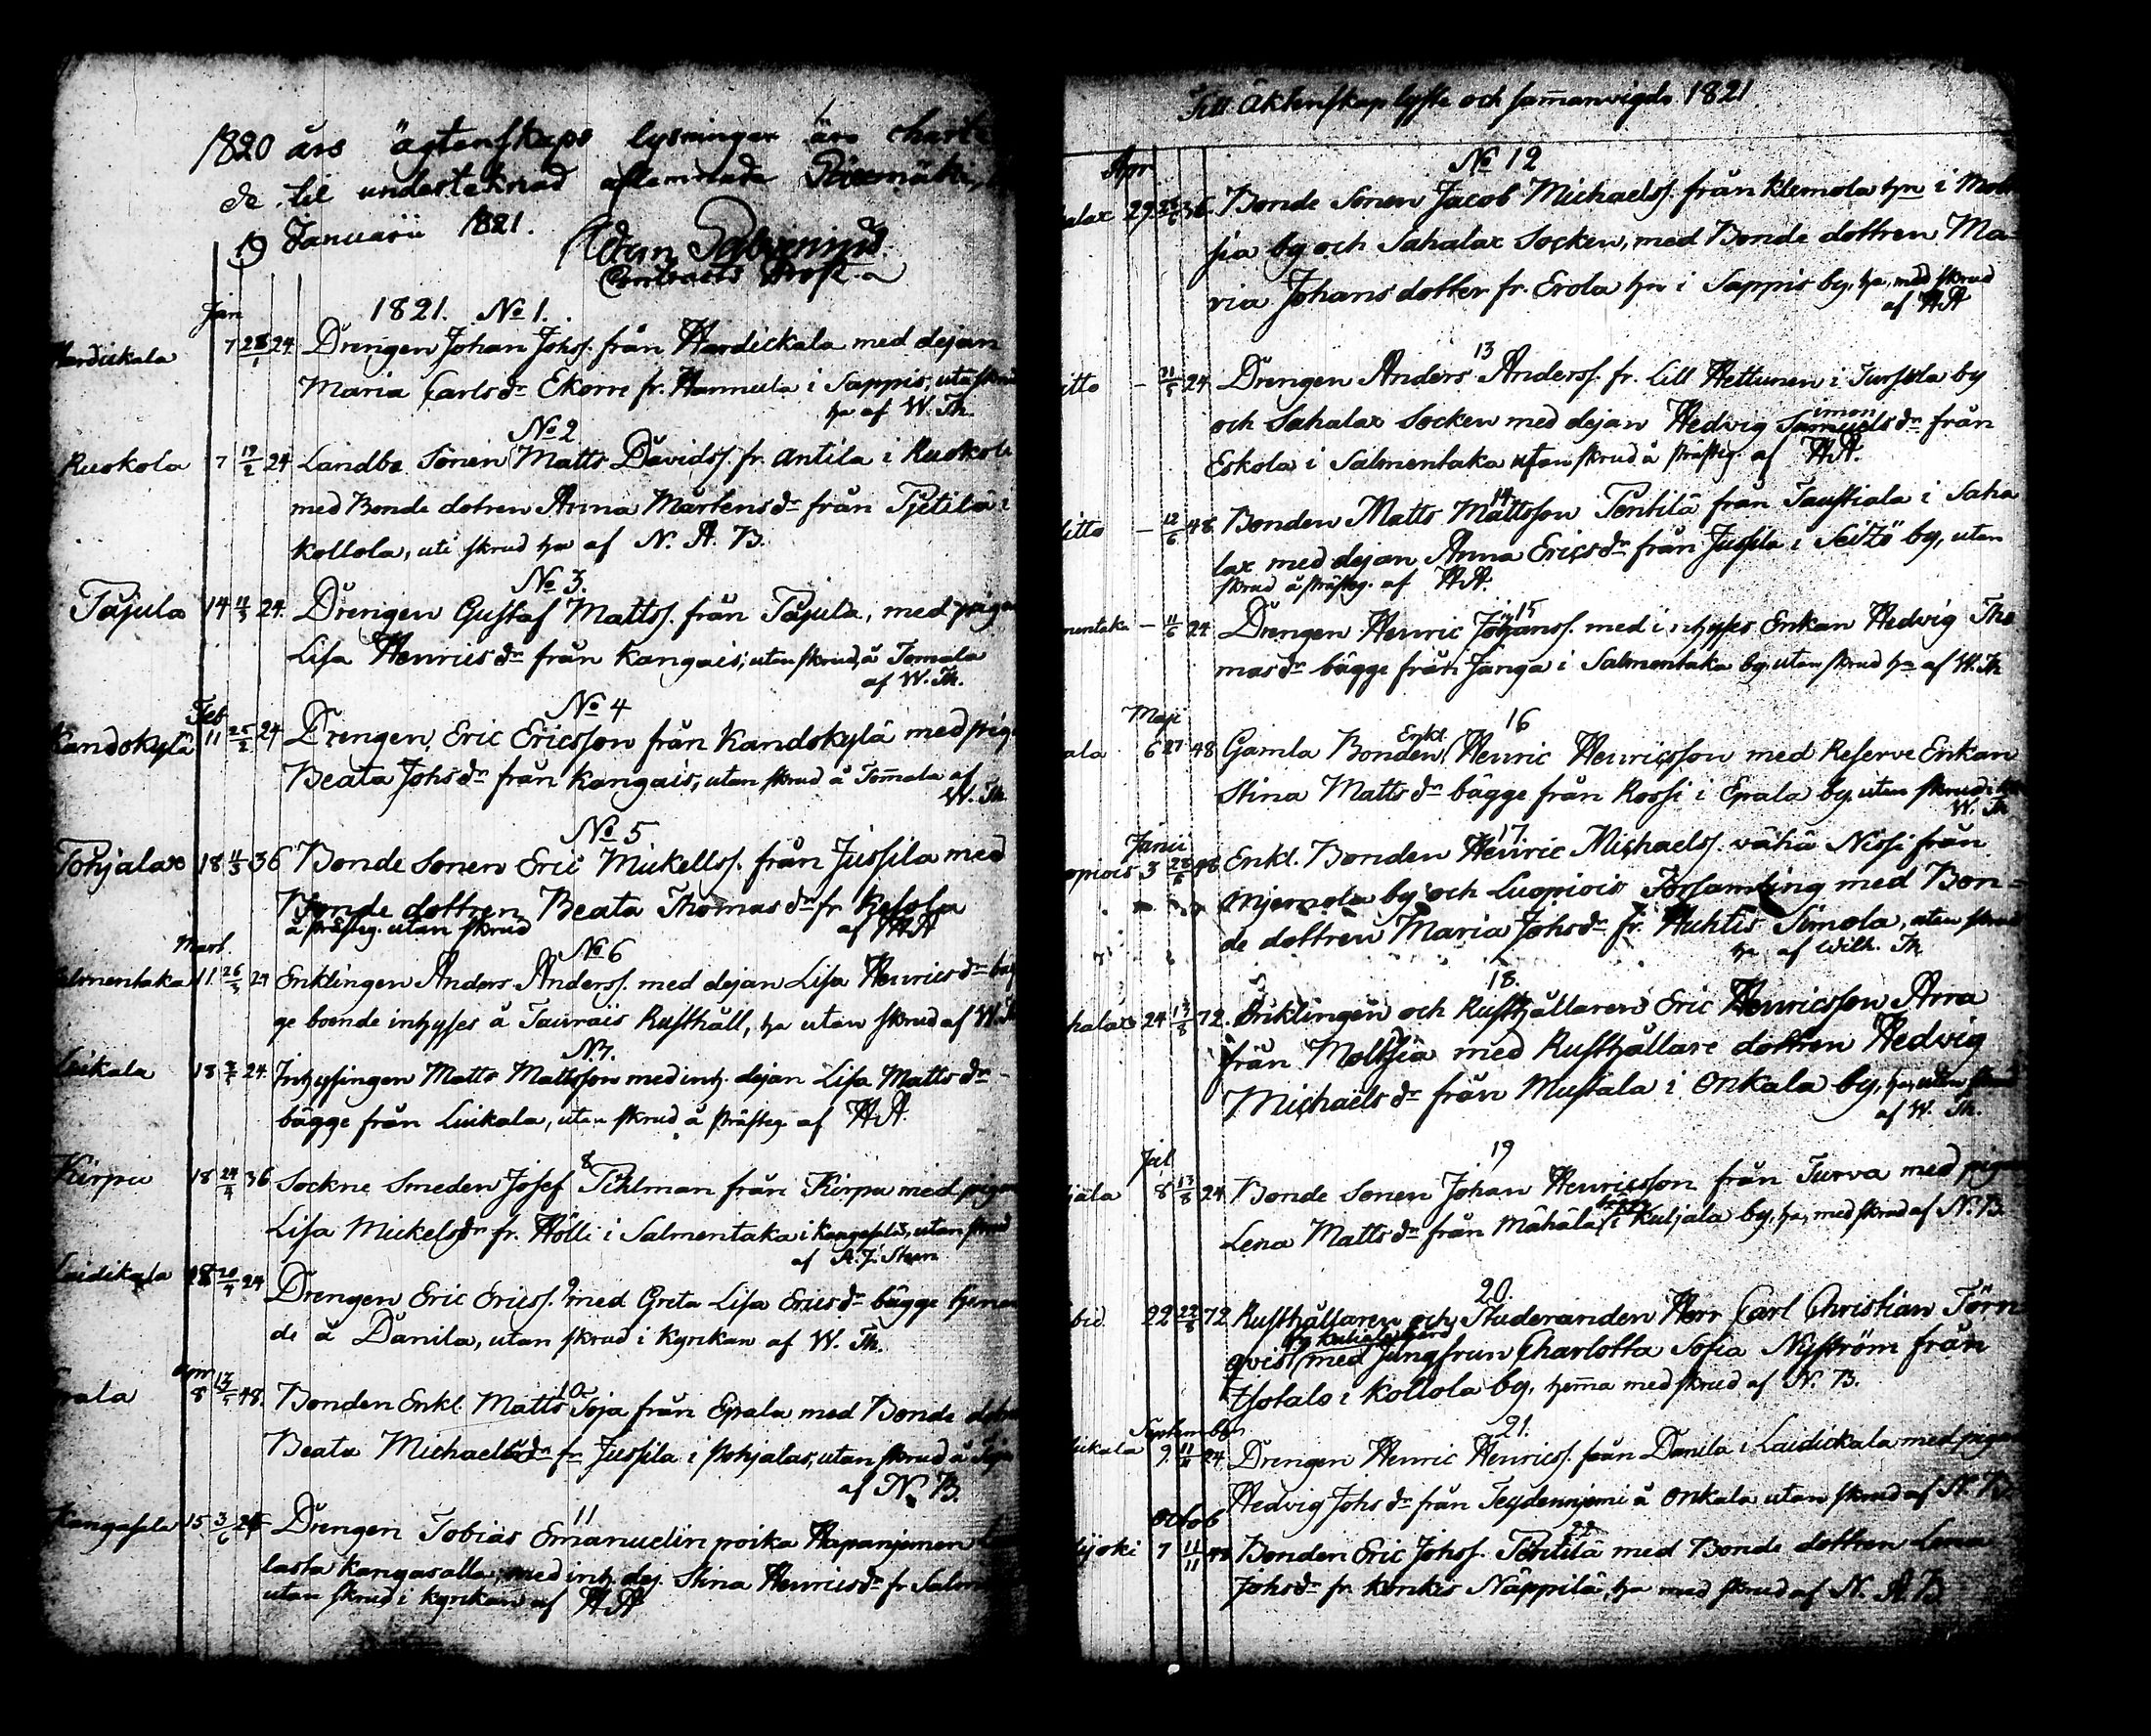 1820 års ägtenskaps lysningar äro
de til underteknad aflemnade
19 Januarii 1821.
Contracts Prost
Jan
1821. No 1.
Hardickala 7 28/1 24 Drengen Johan Johss. från Hardickala med dejan
Maria Carlsdr Ekorre fr. Hannula i Sappis, utan skrud
ha af W. Th.
No 2
Ruokola 7 19/2 24 Landbo Sonen Matts Davidss. fr. Antila i Ruokola
med Bonde dotren Anna Mårtensdr från Pjetilä i
Kollola, uti skrud ha af N. A. B.
No 3.
Tåjula 14 11/3 24. Drengen Gustaf Mattss. från Tåjula, med pigan
Lisa Henricsdr från Kangais, utan skrud, å Tomala
af W. Th.
No 4
Feb
Kandokylä 11 25/2 24 Drengen Eric Ericsson från Kandokylä med pig
Beata Johsdr från Kangais, utan skrud å Tomala af
W. Th.
No 5
Pohjalax 18 11/3 36 Bonde Sonen Eric Mickellss. från Jussila med
Bonde dottren Beata Thomasdr fr Kesola
å Prästeg. utan skrud af HA
Mart. No 6
Salmentaka 11 26/3 24 Enklingen Anders Anderss. med dejan Lisa Henricsdr båg
ge boende inhyses å Taurais Rusthåll, ha utan skrud af W. Th
N. 7.
Luikala 18 24 Inhysingen Matts Mattsson med inh. dejan Lisa Mattsdr
bägge från Luikala, utan skrud å Prästeg af HA.
8
Kirpu 18 24/4 36 Sockne Smeden Josef Pihlman från Kirpu med pigan
Lisa Mickelsdr fr. Hölli i Salmentaka i Kangasala, utan skrud
af A. J. Steen
9
Laidikala 18 20/4 24 Drengen Eric Ericss. med Greta Lisa Ericsdr bägge tjenan
de å Danila, utan skrud i Kyrckan af W. Th.
Apr 10
Epala 8 13/5 48. Bonden Enkl. Matts Toja från Epala med Bonde dotren
Beata Michaelsdr fr Jussila i Pohjalax, utan skrud å
af N. B.
11
Kangasala 15 3/6 24 Drengen Tobias Emanuelin poika Hapanjemen
lasta Kangasalla, med inh. dej. Stina Henricsdr fr Salm
utan skrud i Kyrckan af HA
Till Äktenskap lyste och samanvigde 1821
Apr No 12
29 36. Bonde Sonen Jacob Michaelss. från Klemola hn i Molt
sia by och Sahalax Socken, med Bonde dottren Ma-
ria Johans dotter fr. Erola hn i Sappis by, ha, med skrud
af HA
13
ditto - 31/5 24 Drengen Anders Anderss. fr. Lill Hettunen i Tursola by
imon
och Sahalax Socken med dejan Hedvig Samuelsdr från
Eskola i Salmentaka utan skrud å Prästeg. af HA.
14
ditto - 12/6 48 Bonden Matts Mattsson Pentilä från Taustiala i Saha
lax med dejan Anna Ericsdr från Jussila i Seitzö by, utan
skrud å Prästeg. af HA.
15
mentaka - 11/6 24 Drengen Henric Johanss. med inhyses Enkan Hedvig Tho
masdr bägge från Janga i Salmentaka by, utan skrud ha af W. Th
Maji Enkl. 16
ala 6 27 48 Gamla Bonden Henric Henricsson med Reserve Enkan
Stina Mattsdr bägge från Rossi i Epala by, utan skrud
W. Th
Junii 17
opiois 3 48 Enkl. Bonden Henric Michaelss. vähä Nissi från
Mjemola by och Luopiois Församling med Bon=
de dottren Maria Johsdr fr. Huhtis Simola, utan skrud
ha af Wilh. Th
18.
halax 24 17/8 72. Enklingen och Rusthållaren Eric Henricsson Arra
från Moltsia med Rusthållare dottren Hedvig
Michaelsdr från Mustala i Onkala by, ha, utan skrud
af W. Th.
Jul 19
jäla 8 13/8 24 Bonde Sonen Johan Henricsson från Turva med pigan
Lena Mattsdr från Mähälä i Kuljala by, ha, med skrud af N. B.
20.
ibid. 22 22/8 72 Rusthållaren och Studeranden Herr Carl Christian Törn
qvist med Jungfrun Charlotta Sofia Nyström från
Isotalo i Kollola by, hemma med skrud af N. B.
Septembr 21.
ickala 9. 11/11 24 Drengen Henric Henricss. från Danila i Laidickala med pigan
Hedvig Johsdr från Teydennjemi å Onkala utan skrud af N. B
Octob 22
ijoki 7 11/11 48 Bonden Eric Johss. Pentilä med Bonde dottren Lena
Johsdr fr. Konkis Näppilä, ha med skrud af N. A. B